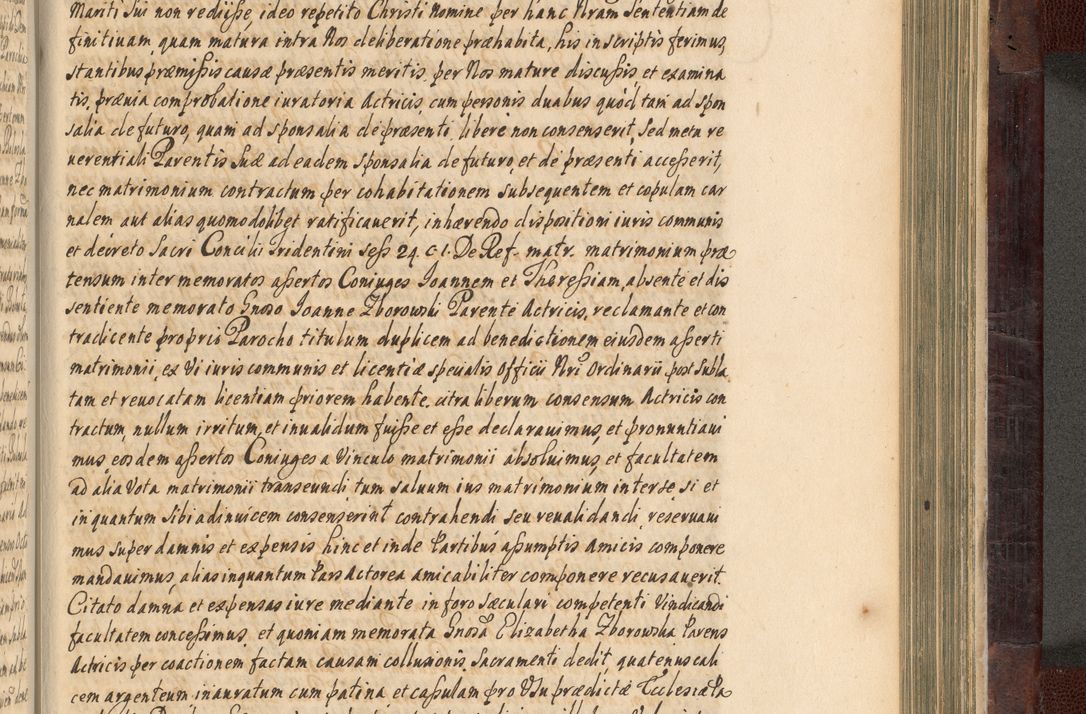 Mariti sui non rediisse, ideo repetito Christi Nomine per hanc Nram Sententiam de
finitivam, quam matura intra Nos deliberatione præhabita, his in scriptis ferimus,
stantibus præmissis causæ præsentis meritis, per Nos mature discussis et examina
tis, prævia comprobatione iuratoria Actricis, cum personis duabus quòd tam ad spon
salia de futuro, quam ad sponsalia de præsenti, libere non consenserit, sed metu re
verentiali Parentis suæ ad eadem sponsalia de futuro, et de præsenti accesserit,
nec matrimonium contractum per cohabitationem subsequentem et copulam car
nalem aut alias quomodolibet ratificaverit, inhærendo dispositioni iuris communis
et decreto Sacri Concilii Tridentini sess 24. C 1. De Ref. matr. matrimonium præ
tensum inter memoratos assertos Coniuges Ioannem et Theressiam, absente et dis
sentiente memorato Gnoso Ioanne Zborowski Parente Actricis, reclamante et con
tradicente proprio Parocho titulum duplicem ad benedictionem eiusdem asserti
matrimonii, ex vi iuris communis et licentiæ specialis Officii Nri Ordinarii post subla
tam et revocatam licentiam priorem habente, citra liberum consensum Actricis con
tractum, nullum irritum, et invalidum fuisse et esse declaravimus, et pronuntiavi
mus, eosdem assertos Coniuges a Vinculo matrimonii absolvimus, et facultatem
ad alia Vota matrimonii transeundi tum salvum ius matrimonium inter se si et
in quantum sibi ad invicem consenserint contrahendi seu revalidandi, reservavi
mus super damnis et expensis hinc et inde Partibus assumptis Amicis componere
mandavimus, alias inquantum Pars Actorea amicabiliter componere recusaverit.
Citato damna, et expensas iure mediante in foro sæculari competenti Vindicandi
facultatem concessimus, et quoniam memorata Gnosa Elizabetha Zborowska Parens
Actricis per coactionem factam causam collusionis Sacramenti dedit, quatenus cali
cem argenteum inauratum cum patina et casulam pro Usu prædictæ Ecclesiæ Pa